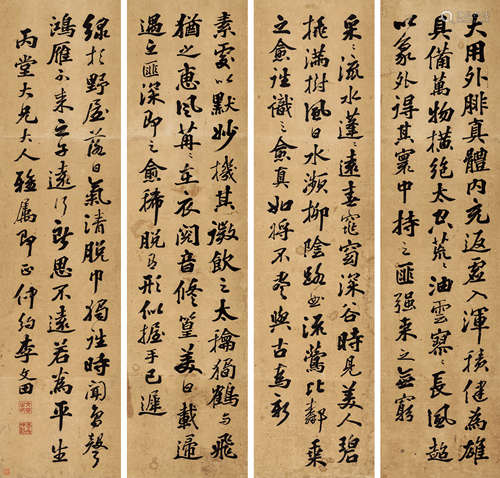 大用外腓真體内充返虛入渾積健為雄
具備萬物橫絶太空荒〻油雲寥〻長風超
以象外得其寰中持之匪强来之無窮
采〻流水蓬〻遠春窈窕深谷時見美人碧
桃滿樹風日水濱柳陰路曲流鶯比鄰乘
之愈往識之愈真如将不盡與古為新
素處以默妙機其微飲之太和獨鶴與飛
猶之惠風荏苒在衣閲音修篁美曰載歸
遇之匪深即之愈稀脱有形似握手已違
緑杉野屋落日氣清脱巾獨往時聞鳥聲
鴻雁不来之子遠行所思不遠若為平生
丙堂大兄大人雅屬即正仲約李文田